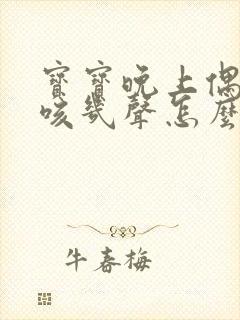 寶寶晚上偶
咳幾聲怎麼
牛春梅